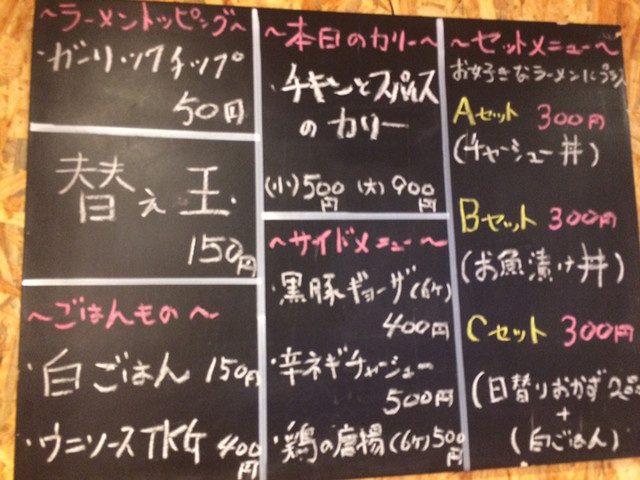 ～ラーメントッピング～
・ガーリックチップ
50円
替え玉
150円
～ごはんもの～
・白ごはん 150円
・ウニソースTKG 400円
～本日のカリー～
・チキンとスパイス
のカリー
(小)500円 (大)900円
～サイドメニュー～
・黒豚ギョーザ(6ケ)
400円
・辛ネギチャーシュー
500円
・鶏の唐揚(6ケ)500円
～セットメニュー～
お好きなラーメンにプラス
Aセット 300円
(チャーシュー丼)
Bセット 300円
(お魚漬け丼)
Cセット 300円
(日替りおかず2品
+
(白ごはん)